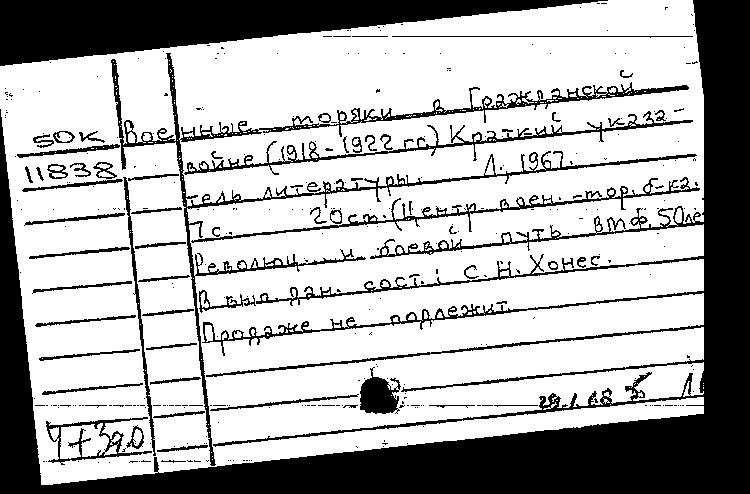 50К Военные моряки в Гражданской
11838 войне (1918-1922 гг.) Краткий указа-
тель литературы. Л., 1967.
7 с. 20 см. (Центр. воен.-мор. б-ка.
Революц. и боевой путь ВМФ. 50 ле
В вып. дан. сост.: С. Н. Хонес.
Продаже не подлежит.
29.1.68